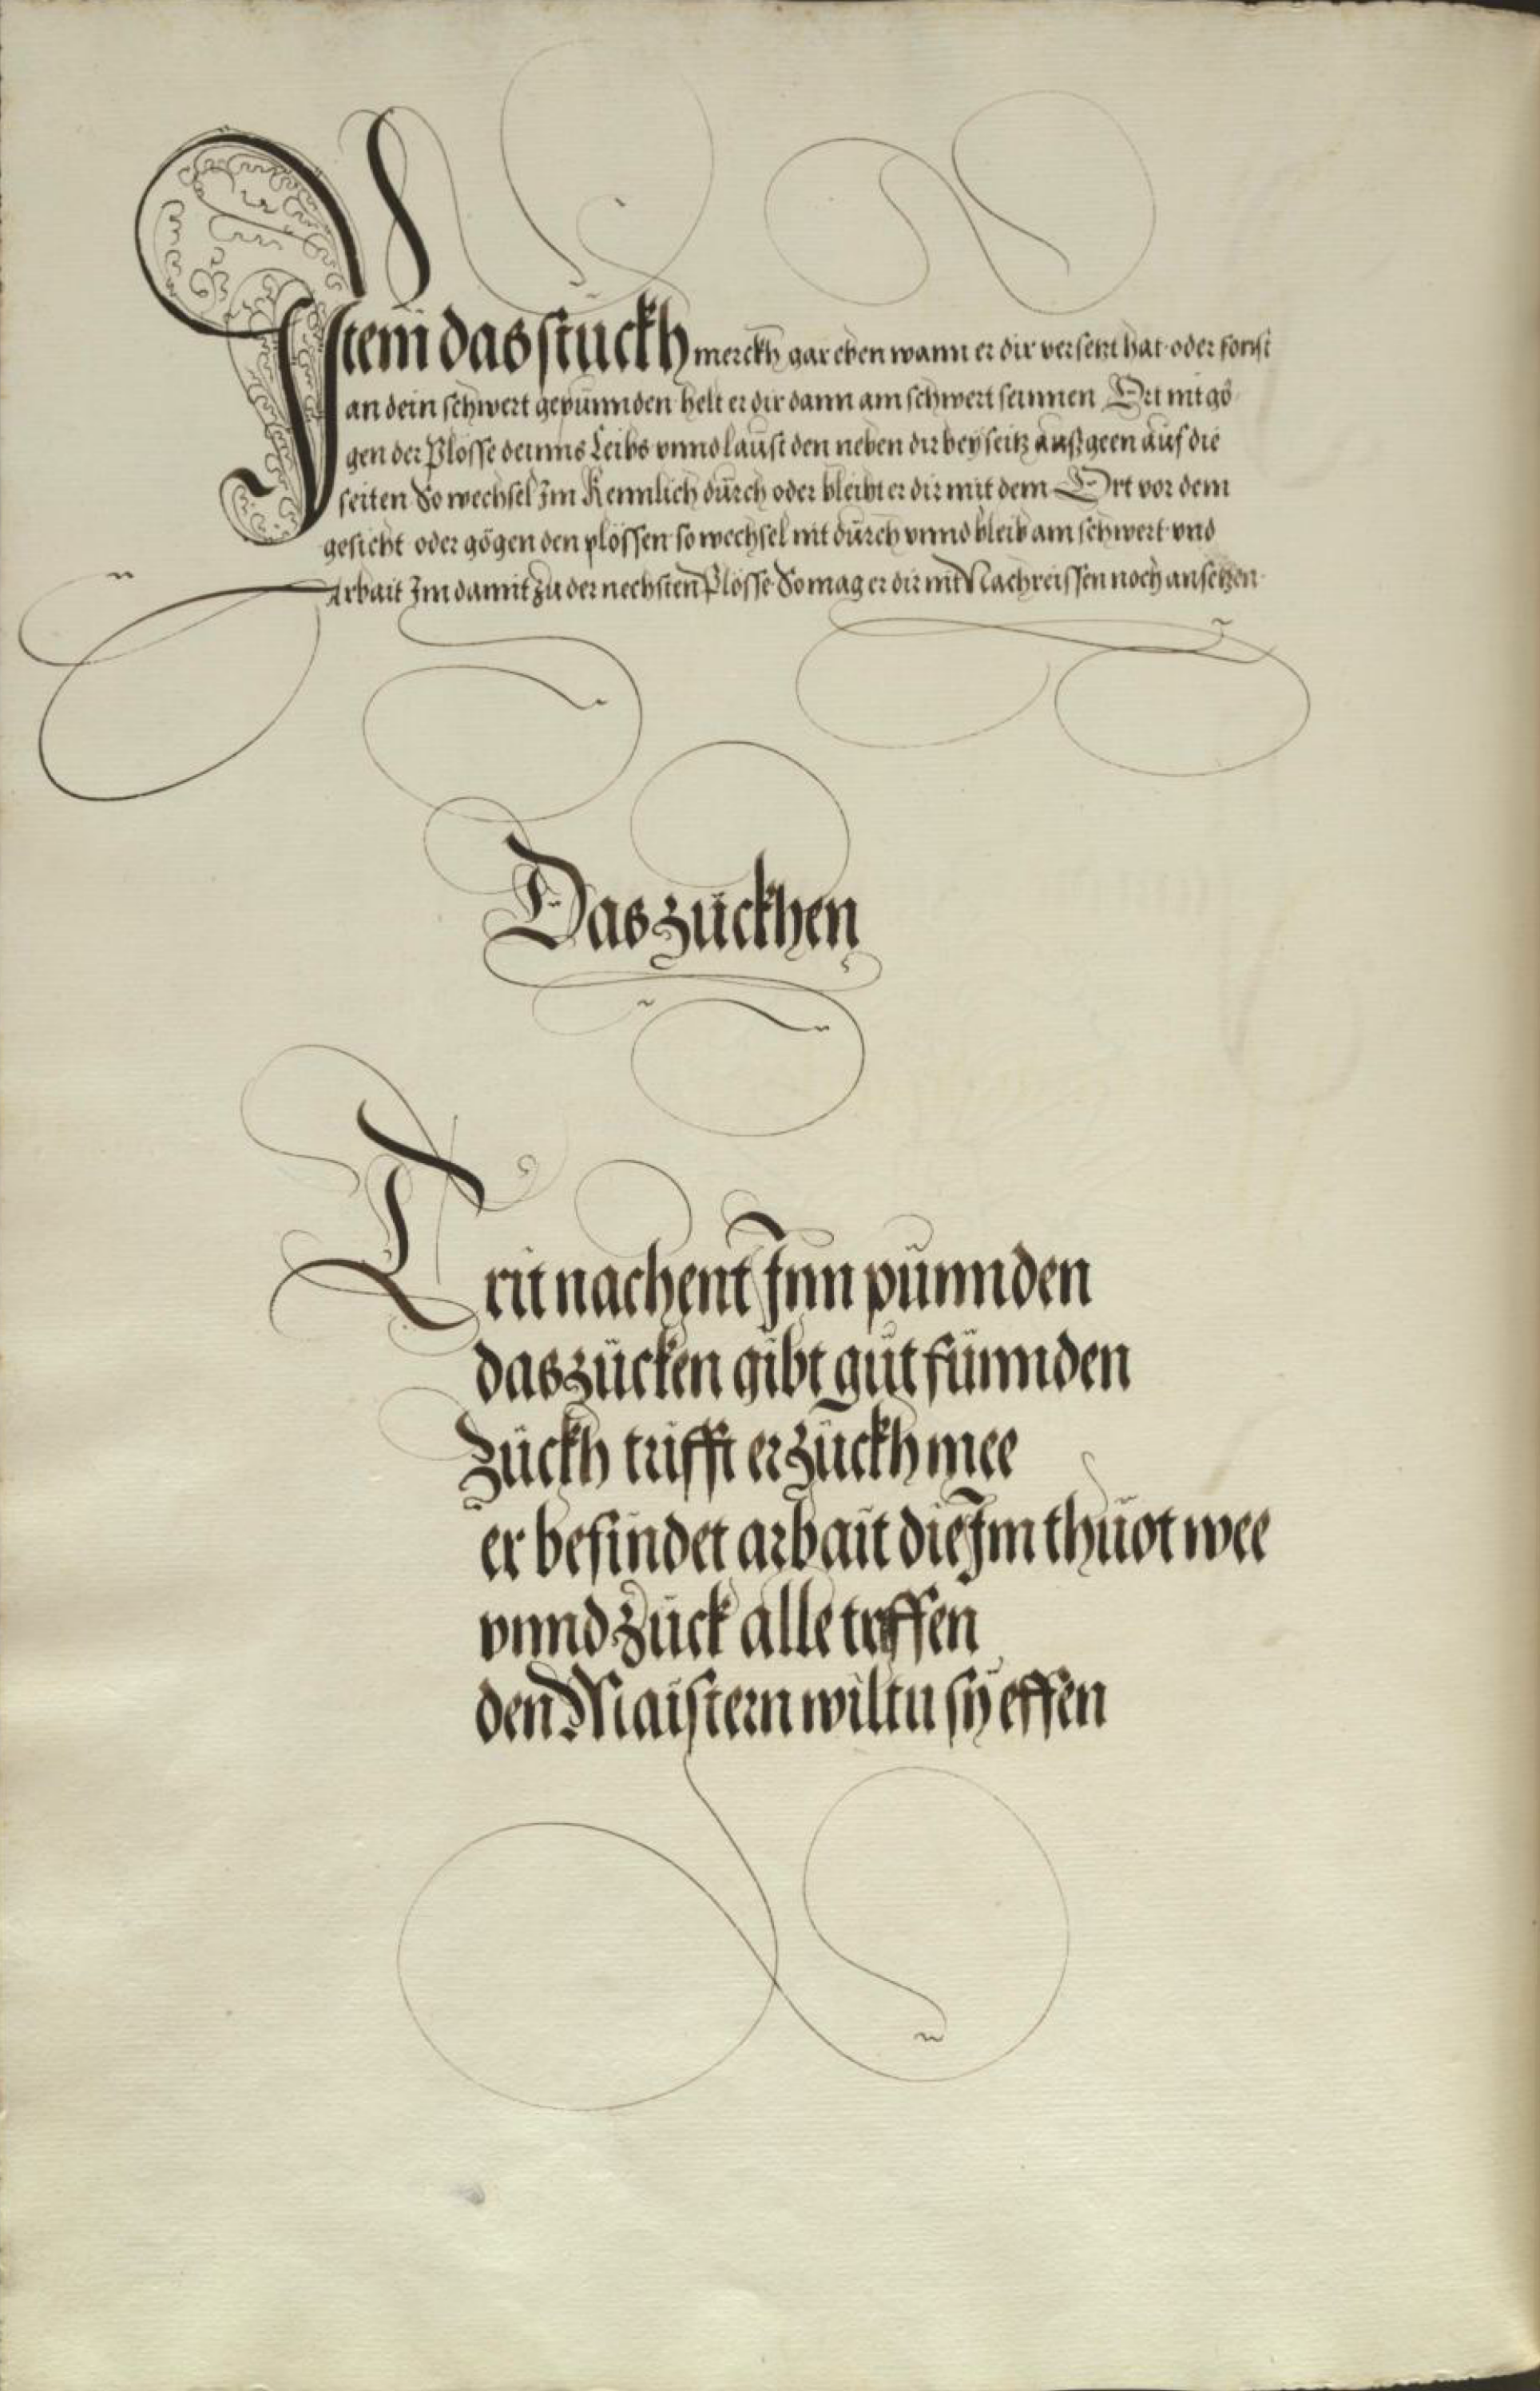 Item das stückh merckh gar eben wann er dir versetzt hat oder sonst
an dein schwert gepünnden helt er dir dann am schwert seinnen Ort nit gö
gen der Plösse deinns Leibs vnnd laust den neben dir beyseitz außgeen auf die
seiten So wechsel Im Kennlich dürch oder bleibt er dir mit dem Ort vor dem
gesicht oder gögen den plössen so wechsel nit dürch vnnd bleib am schwert vnd
Arbait Im damit zu der nechsten Plösse So mag er dir nit Nachreissen noch ansetzen
Das zückhen
Trit nachent Inn pünnden
das zücken gibt güt fünnden
Zückh trifft er zückh mee
er befindet arbait die Im thüot wee
vnnd zück alle treffen
den Maistern wiltu sy effen